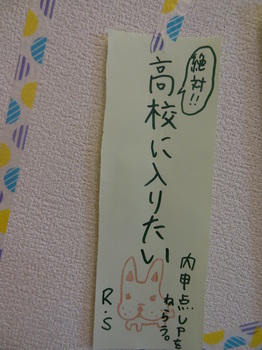 絶対!!
高校に入りたい
内申点UPを
ねらう。
R.S